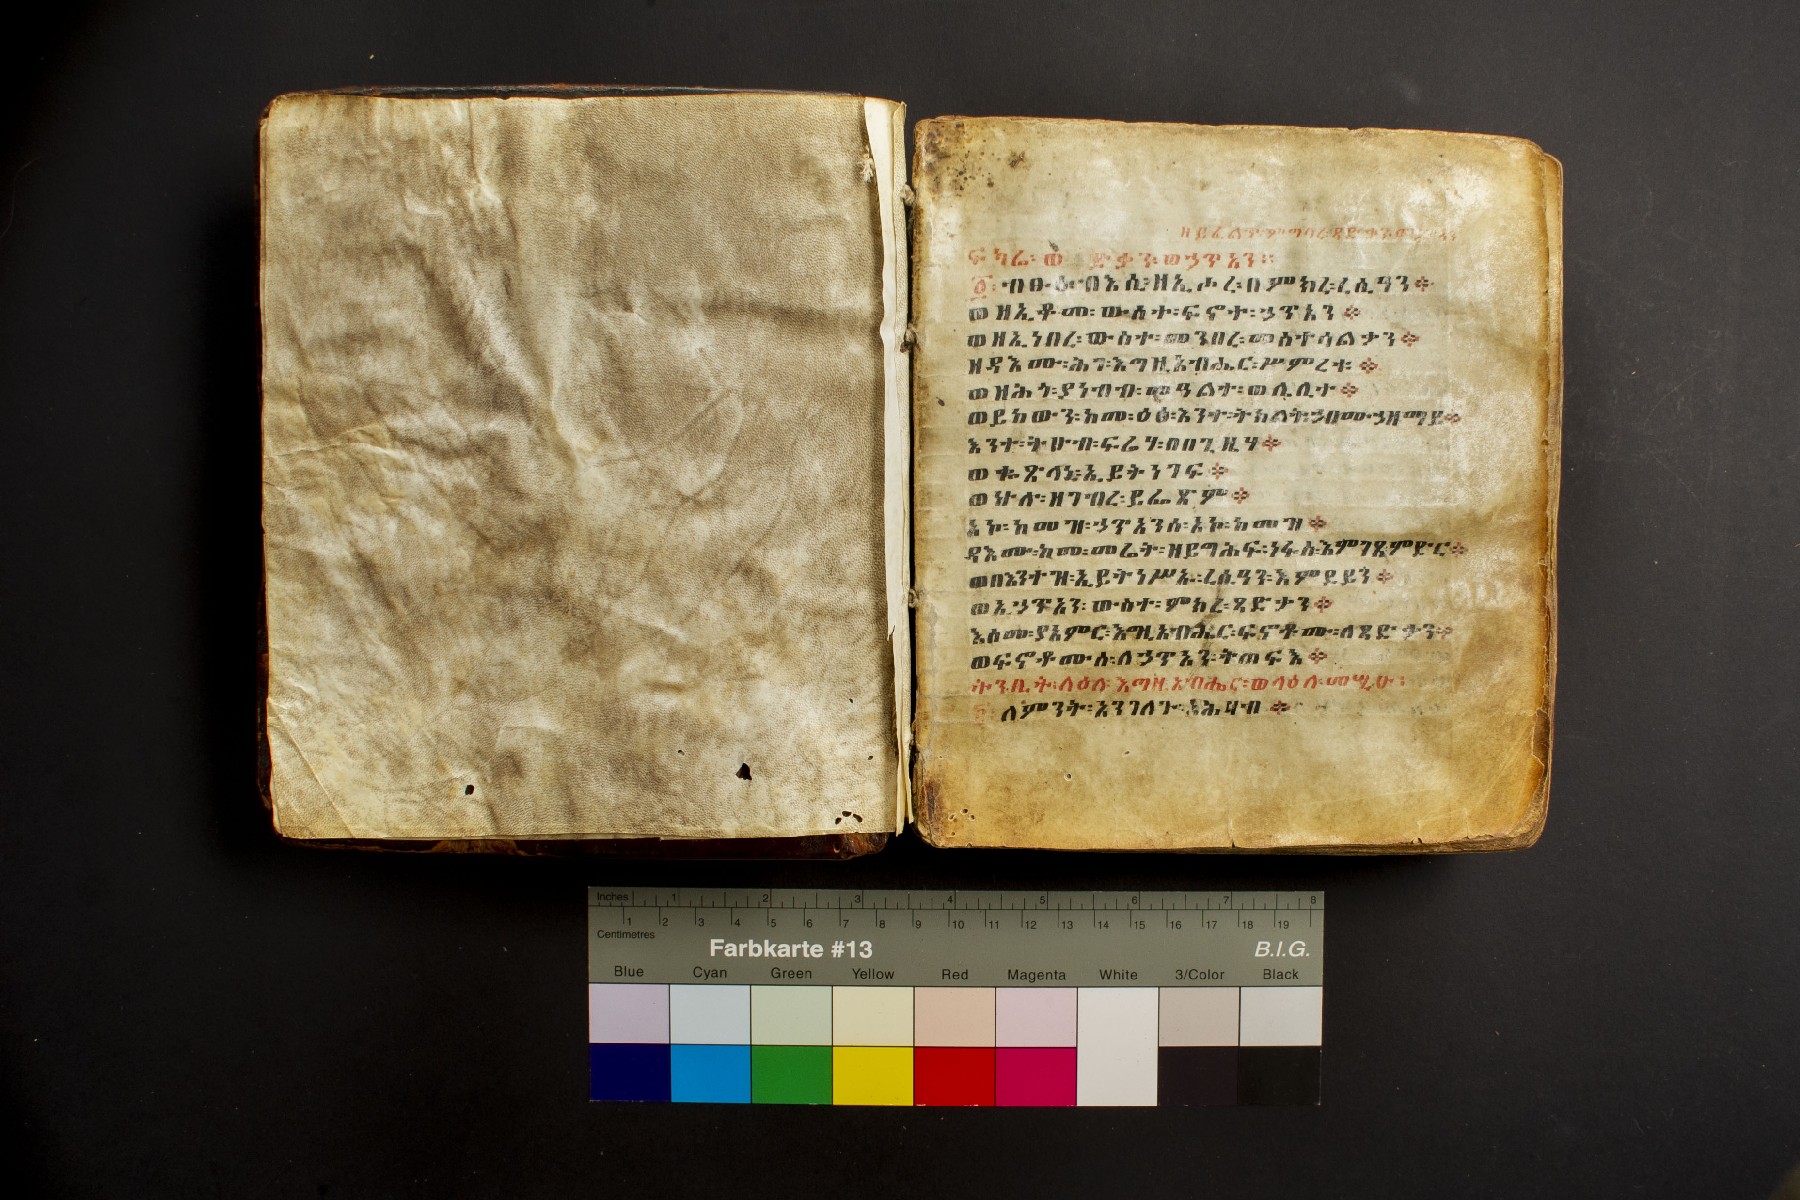 ፍካሬ፡ ወ ድቃን፡ ወኃጥአን።
፩፡ ብፁዕ፡ ብእሲ፡ ዘኢሖረ፡ በምክረ፡ ረሲዓን፨
ወዘኢቆመ፡ ውስተ፡ ፍኖተ፡ ኃጥአን፨
ወዘኢነበረ፡ ውስተ፡ መንበረ፡ መስተሳልቃን፨
ዘዳእሙ፡ ሕገ፡ እግዚአብሔር፡ ሥምረቱ፨
ወዘሕጎ፡ ያነብብ፡ መዓልተ፡ ወሌሊተ፨
ወይከውን፡ ከመ፡ ዕፅ፡ እንተ፡ ትክልት፡ ኃበ፡ ሙኃዘ፡ ማይ፨
እንተ፡ ትሁብ፡ ፍሬሃ፡ በበጊዜሃ፨
ወቈጽላኒ፡ ኢይትነገፍ፨
ወኵሎ፡ ዘገብረ፡ ይፌጽም፨
አኮ፡ ከመዝ፡ ኃጥአንሰ፡ አኮ፡ ከመዝ፨
ዳእሙ፡ ከመ፡ መሬት፡ ዘይግሕፍ፡ ነፋስ፡ እምገጸ፡ ምድር፨
ወበእንተዝ፡ ኢይትነሥኡ፡ ረሲዓን፡ እምደይን፨
ወኢኃጥአን፡ ውስተ፡ ምክረ፡ ጻድቃን፨
እስመ፡ ያአምር፡ እግዚአብሔር፡ ፍኖቶሙ፡ ለጻድቃን፨
ወፍኖቶሙሰ፡ ለኃጥአን፡ ትጠፍእ፨
ትንቢት፡ ላዕለ፡ እግዚአብሔር፡ ወላዕለ፡ መሢሁ፡
፪፡ ለምንት፡ አንገለጉ፡ አሕዛብ፨
Inches 1 2 3 4 5 6 7 8
1 2 3 4 5 6 7 8 9 10 11 12 13 14 15 16 17 18 19
Centimetres
Farbkarte #13 B.I.G.
Blue Cyan Green Yellow Red Magenta White 3/Color Black